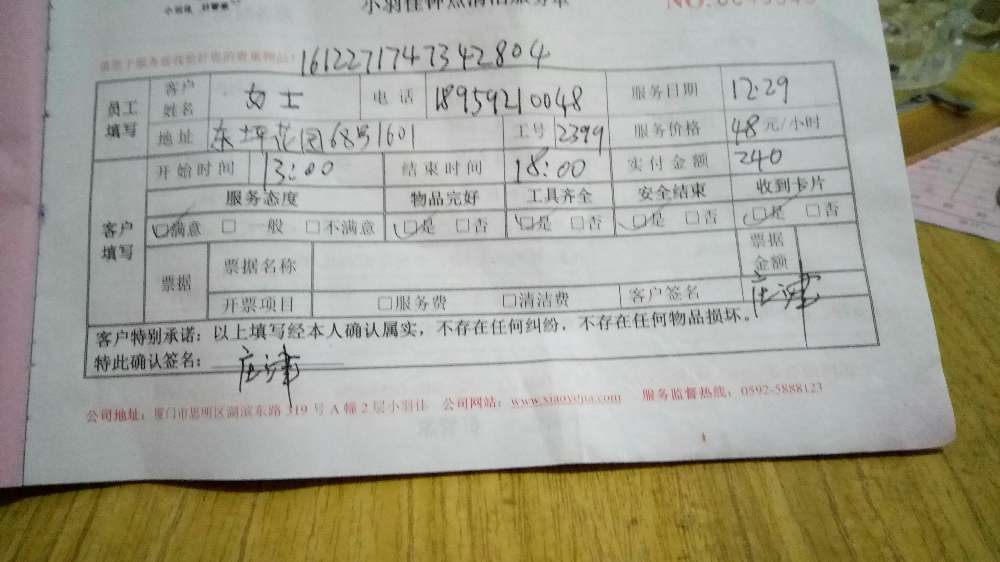 小羽佳 好管家
小羽佳钟点清洁服务单
NO.
请您于服务前收检好您的贵重物品!
1612271747342804
员工填写 客户姓名 女士 电话 18959210048 服务日期 12.29
地址 东坪花园68号1601 工号 2399 服务价格 48元/小时
客户填写 开始时间 13:00 结束时间 18:00 实付金额 240
服务态度 物品完好 工具齐全 安全结束 收到卡片
☑满意 □一般 □不满意 ☑是 □否 ☑是 □否 ☑是 □否 ☑是 □否
票据 票据名称 票据金额
开票项目 □服务费 □清洁费 客户签名
客户特别承诺:以上填写经本人确认属实,不存在任何纠纷,不存在任何物品损坏。
特此确认签名:
公司地址:厦门市思明区湖滨东路319号A幢2层小羽佳 公司网站:www.xiaoyujia.com 服务监督热线:0592-5888123